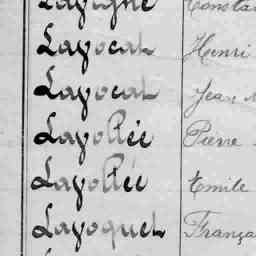 Lavigne Consta
Layocat Henri
Layocat Jean
Layollée Pierre
Layollée Emile
Layoquet França